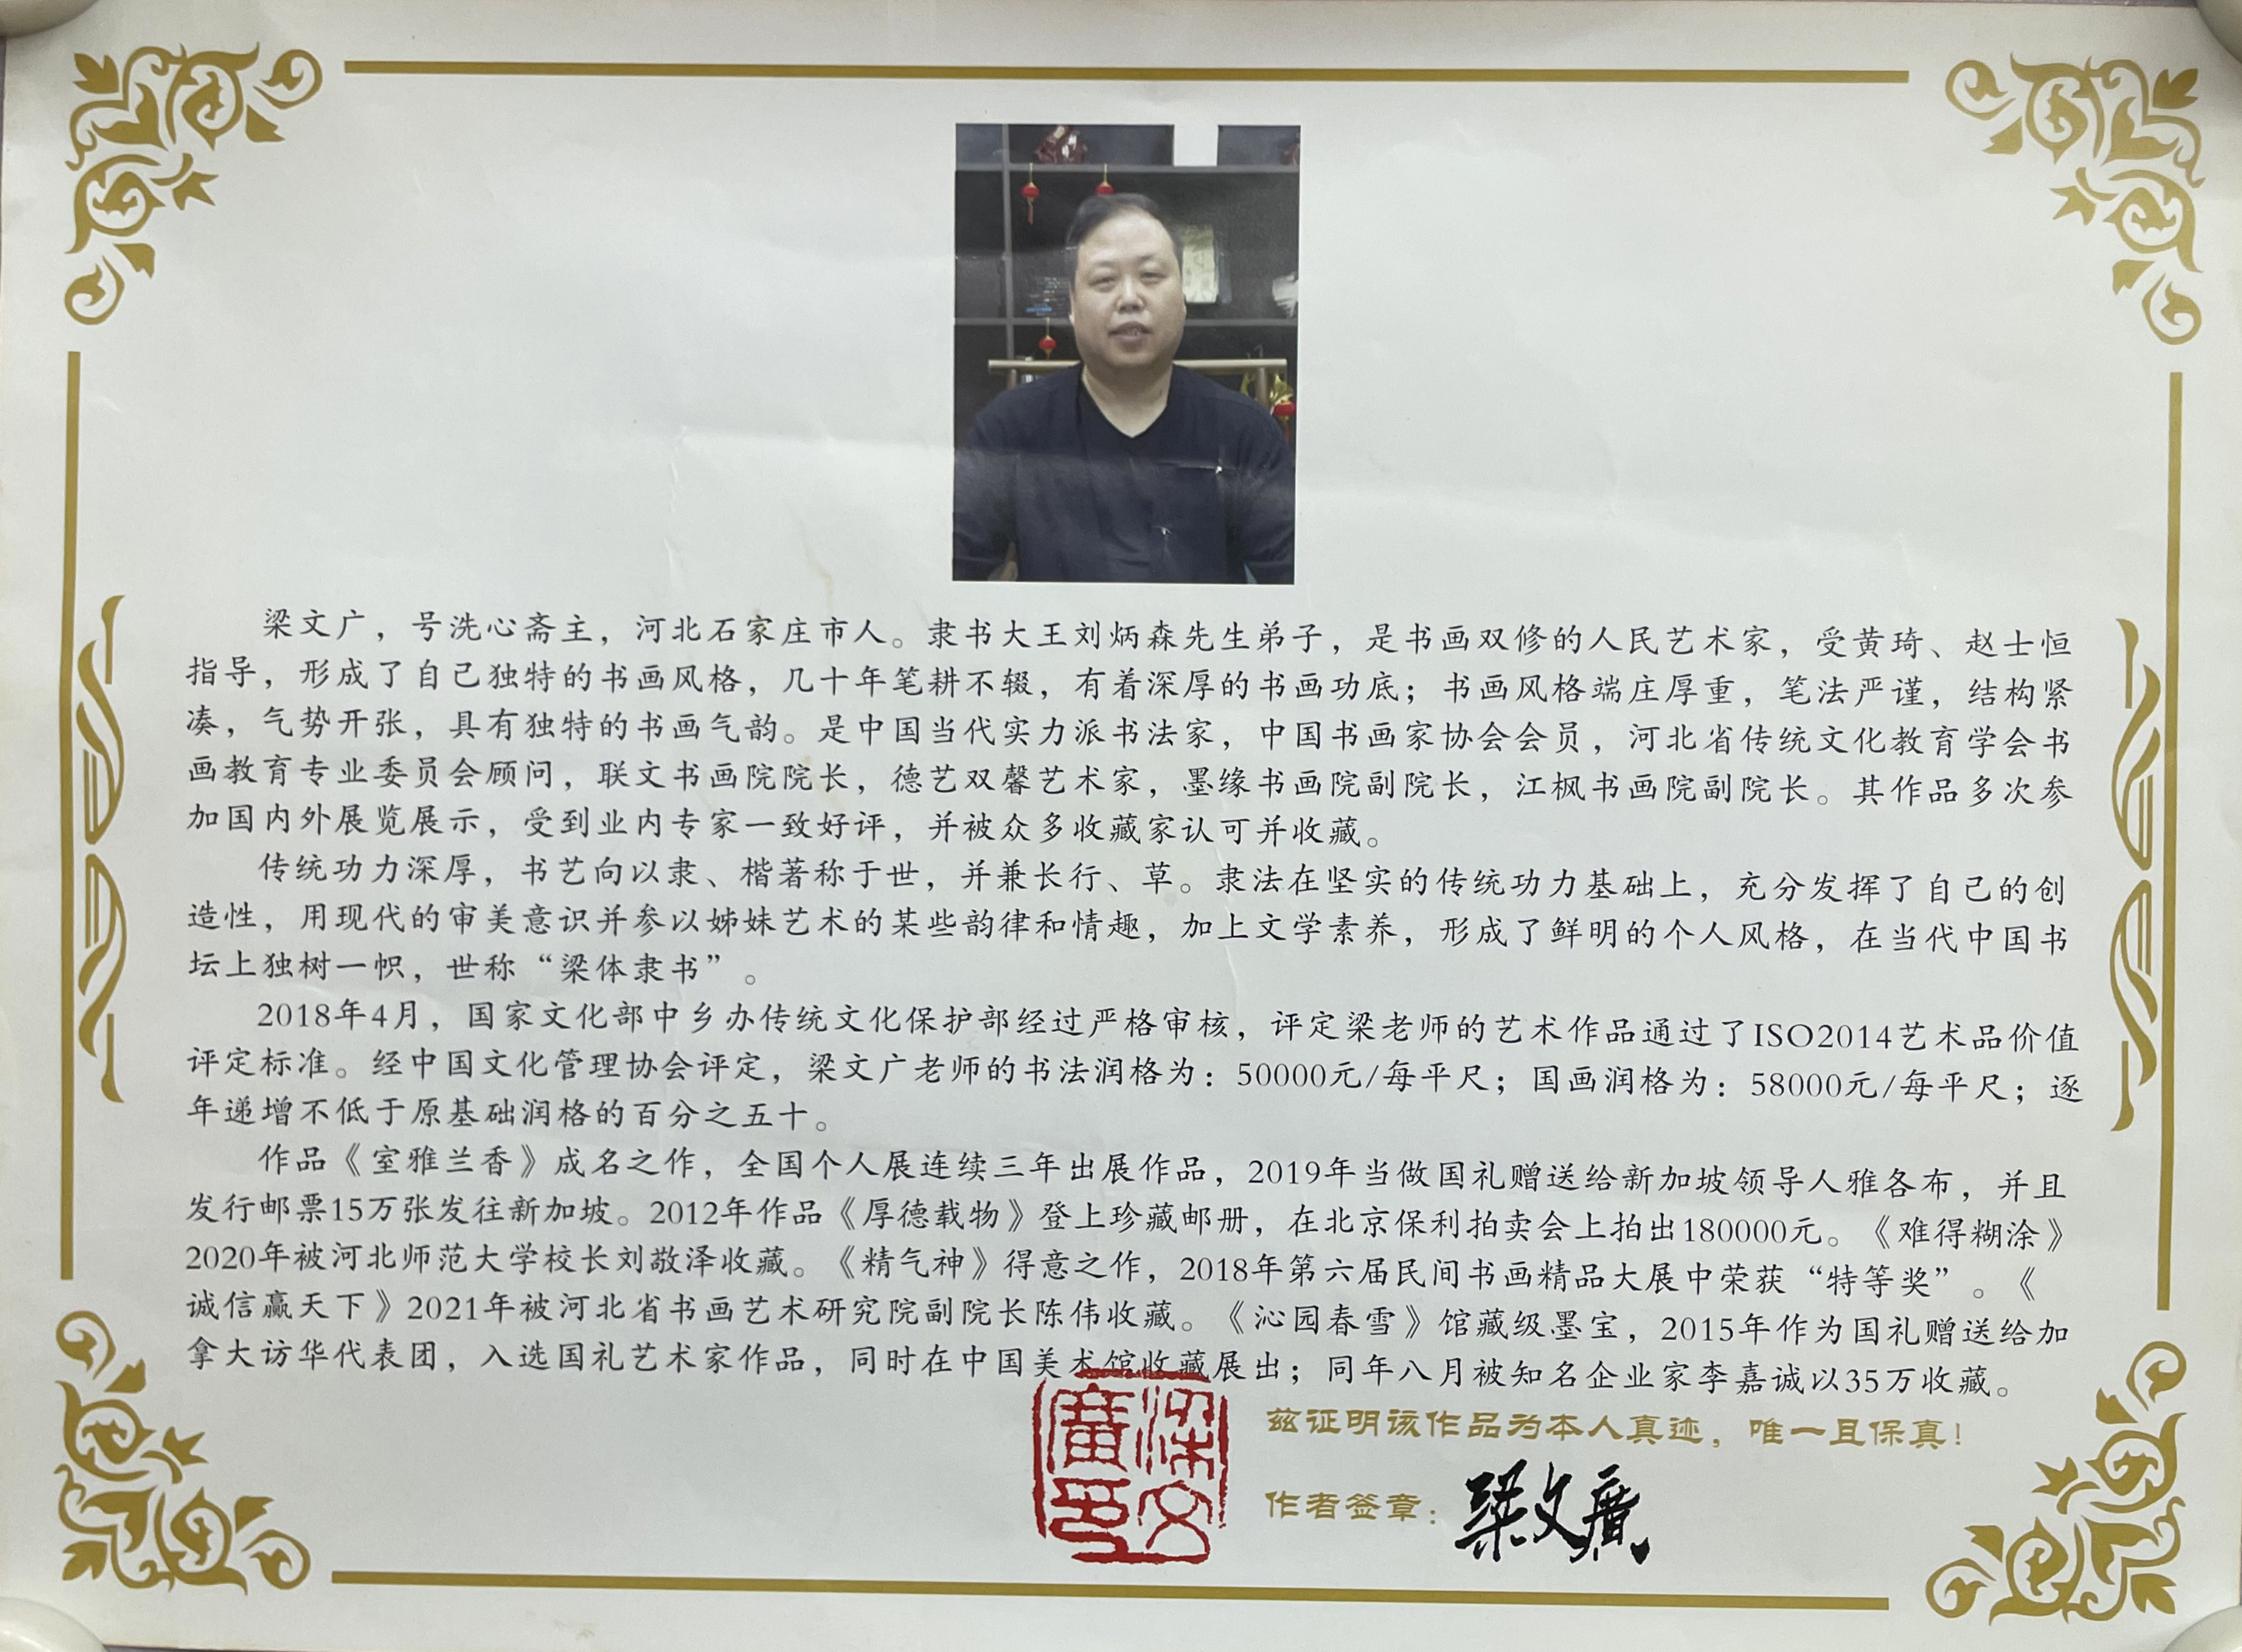 梁文广，号洗心斋主，河北石家庄市人。隶书大王刘炳森先生弟子，是书画双修的人民艺术家，受黄琦、赵士恒
指导，形成了自己独特的书画风格，几十年笔耕不辍，有着深厚的书画功底；书画风格端庄厚重，笔法严谨，结构紧
凑，气势开张，具有独特的书画气韵。是中国当代实力派书法家，中国书画家协会会员，河北省传统文化教育学会书
画教育专业委员会顾问，联文书画院院长，德艺双馨艺术家，墨缘书画院副院长，江枫书画院副院长。其作品多次参
加国内外展览展示，受到业内专家一致好评，并被众多收藏家认可并收藏。
传统功力深厚，书艺向以隶、楷著称于世，并兼长行、草。隶法在坚实的传统功力基础上，充分发挥了自己的创
造性，用现代的审美意识并参以姊妹艺术的某些韵律和情趣，加上文学素养，形成了鲜明的个人风格，在当代中国书
坛上独树一帜，世称“梁体隶书”。
2018年4月，国家文化部中乡办传统文化保护部经过严格审核，评定梁老师的艺术作品通过了ISO2014艺术品价值
评定标准。经中国文化管理协会评定，梁文广老师的书法润格为：50000元/每平尺；国画润格为：58000元/每平尺；逐
年递增不低于原基础润格的百分之五十。
作品《室雅兰香》成名之作，全国个人展连续三年出展作品，2019年当做国礼赠送给新加坡领导人雅各布，并且
发行邮票15万张发往新加坡。2012年作品《厚德载物》登上珍藏邮册，在北京保利拍卖会上拍出180000元。《难得糊涂》
2020年被河北师范大学校长刘敬泽收藏。《精气神》得意之作，2018年第六届民间书画精品大展中荣获“特等奖”。《
诚信赢天下》2021年被河北省书画艺术研究院副院长陈伟收藏。《沁园春雪》馆藏级墨宝，2015年作为国礼赠送给加
拿大访华代表团，入选国礼艺术家作品，同时在中国美术馆收藏展出；同年八月被知名企业家李嘉诚以35万收藏。
兹证明该作品为本人真迹，唯一且保真！
作者签章：梁文廣
梁文廣印